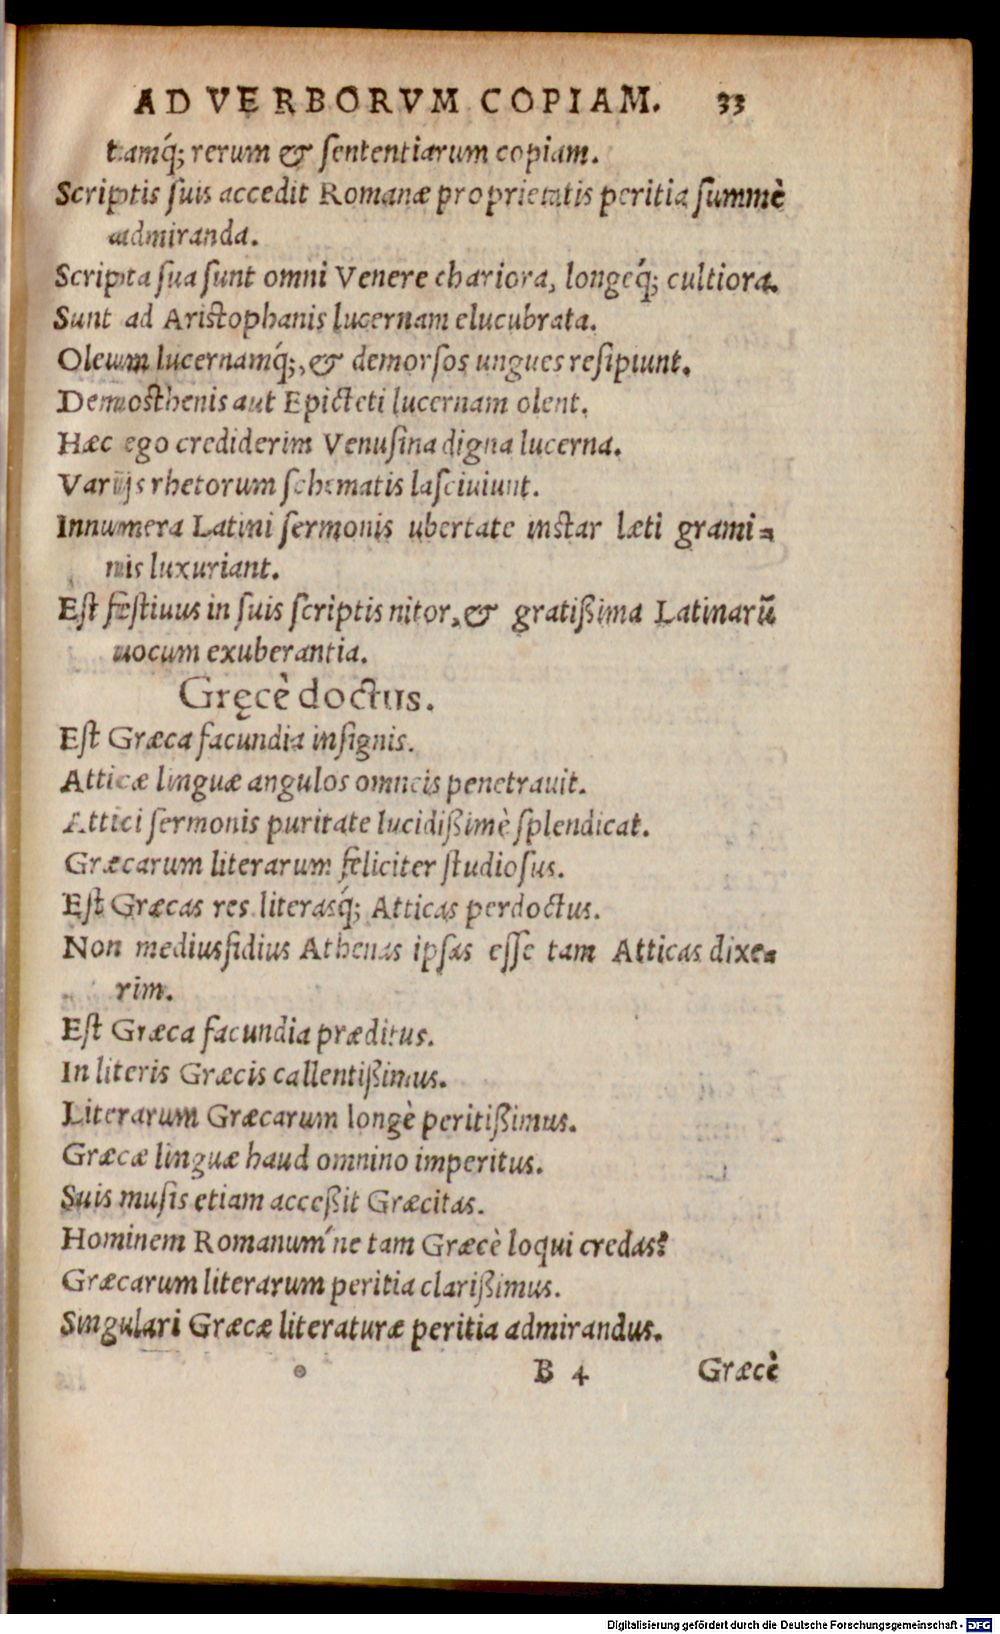 AD VERBORVM COPIAM. 33
tamq́; rerum & ſententiarum copiam.
Scriptis ſuis accedit Romanæ proprietatis peritia ſummè
admiranda.
Scripta ſua ſunt omni Venere chariora, longeq́; cultiora.
Sunt ad Ariſtophanis lucernam elucubrata.
Oleum lucernamq́;, & demorſos ungues reſipiunt.
Demoſthenis aut Epicteti lucernam olent.
Hæc ego crediderim Venuſina digna lucerna.
Varijs rhetorum ſchematis laſciuiunt.
Innumera Latini ſermonis ubertate inſtar læti grami-
nis luxuriant.
Eſt feſtiuus in ſuis ſcriptis nitor, & gratißima Latinarũ
uocum exuberantia.
Gręcè doctus.
Eſt Græca facundia inſignis.
Atticæ linguæ angulos omneis penetrauit.
Attici ſermonis puritate lucidißimè ſplendicat.
Græcarum literarum feliciter ſtudioſus.
Eſt Græcas res literasq́; Atticas perdoctus.
Non mediusfidius Athenas ipſas eſſe tam Atticas dixe-
rim.
Eſt Græca facundia præditus.
In literis Græcis callentißimus.
Literarum Græcarum longè peritißimus.
Græcæ linguæ haud omnino imperitus.
Suis muſis etiam acceßit Græcitas.
Hominem Romanum´ne tam Græcè loqui credas?
Græcarum literarum peritia clarißimus.
Singulari Græcæ literaturæ peritia admirandus.
B 4 Græcè
Digitalisierung gefördert durch die Deutsche Forschungsgemeinschaft - DFG